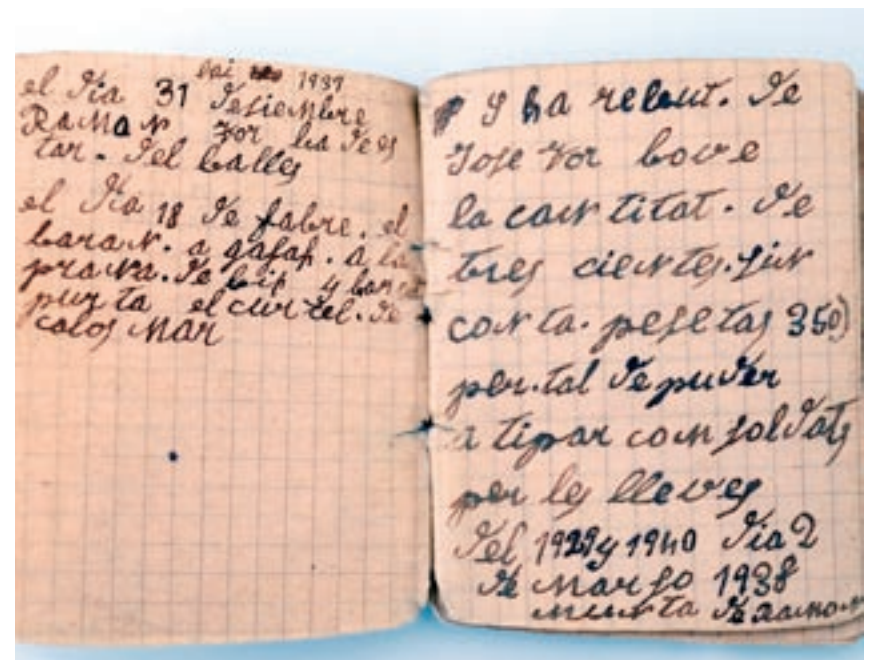 1937
el dia 31 desiembre
RaMon
tar. del balles
el dia 18 de fabre. el
baran. a gafaf. a la
prava. de bif y
pur ta el cur tel. de
calos Mar
y ha rebut. de
Jose bove
la can titat. de
tres cientes. sin
con ta. pesetas 350)
per. tal de puder
a tipar com soldats
per les lleves
del 1929 y 1940 dia 2
de Marso 1938
munta de ramon